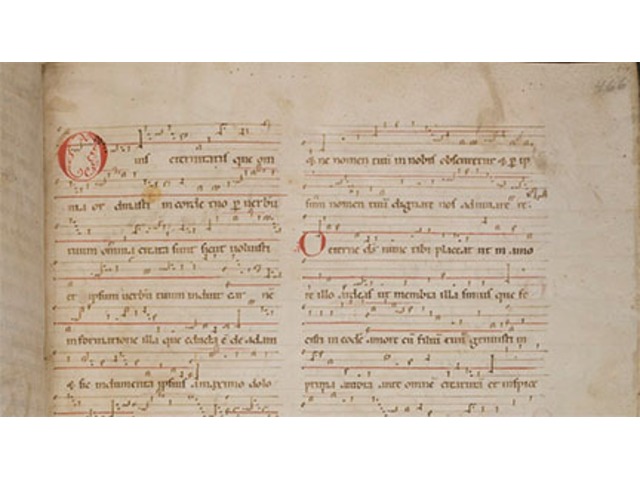 466
O uis eternitatis que om
nia ordinasti in corde tuo p uerbū
tuum omīa creata sunt sicut uoluisti
et ipsum uerbū tuum induit carnē
in formatione illa que educta ē de adam
& sic indumenta ipsius a maximo dolo
& ne nomen tuū in nobis obscuretur & p ip
sum nomen tuū dignare nos adiuuare
O eterne ds nunc tibi placeat ut in amo
re illo ardeas ut membra illa simus que fe
cisti in eodē amore cū filiū tuū genuisti in
prima aurora ante omnē creaturā et inspice